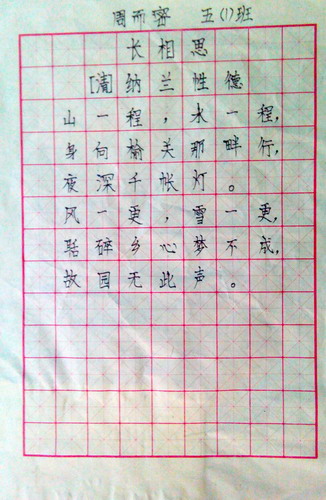 周而密 五(1)班
长相思
[清]纳兰性德
山一程,水一程,
身向榆关那畔行,
夜深千帐灯。
风一更,雪一更,
聒碎乡心梦不成,
故园无此声。